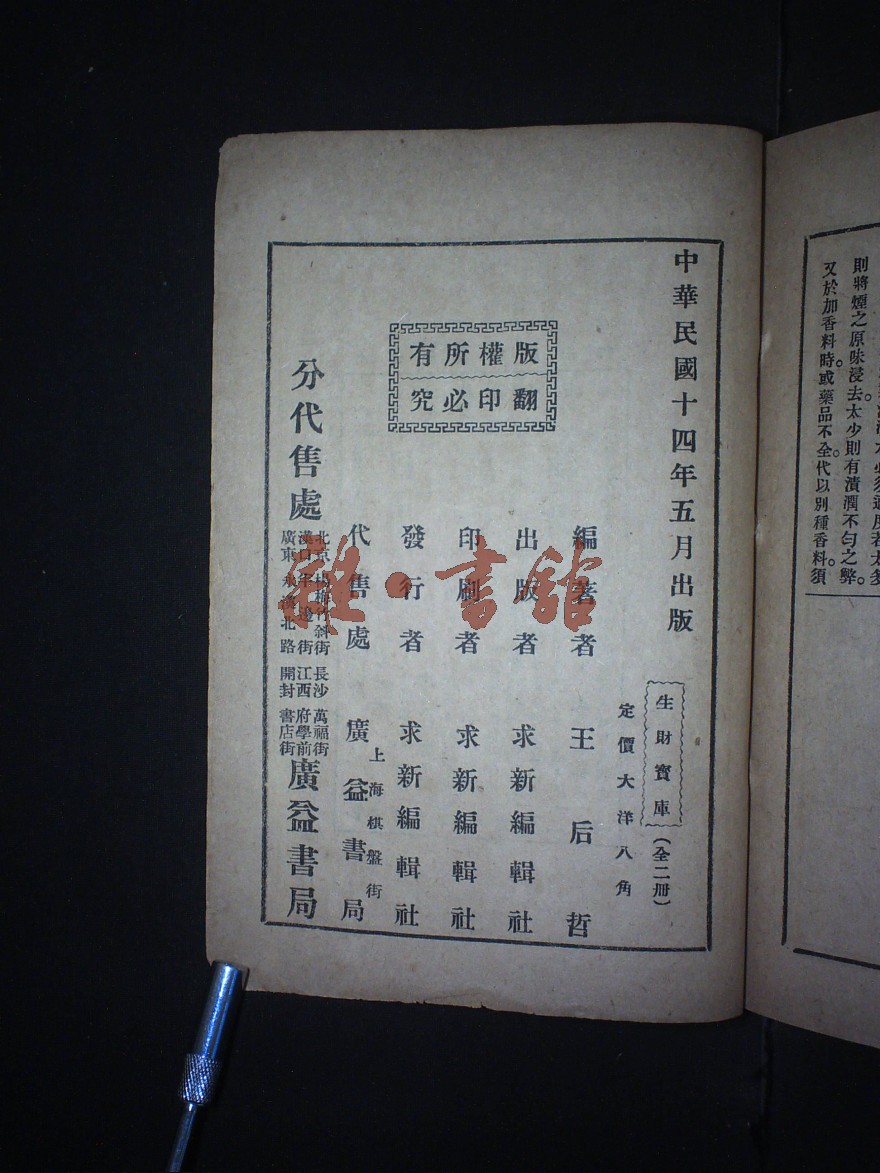 則將煙之原味浸去。太少則有漬潤不勻之弊。
又於加香料時。或藥品不全。代以別種香料。須
中華民國十四年五月出版
生財寶庫
(全二册)
定價大洋八角
版權所有
翻印必究
編著者 王后哲
出版者 求新編輯社
印刷者 求新編輯社
發行者 求新編輯社
代售處 上海棋盤街 廣益書局
分代售處
北京楊梅竹斜街 長沙萬福街
漢口 邊街 江西府學前
廣東永漢北路 開封書店街
廣益書局
雜·書館